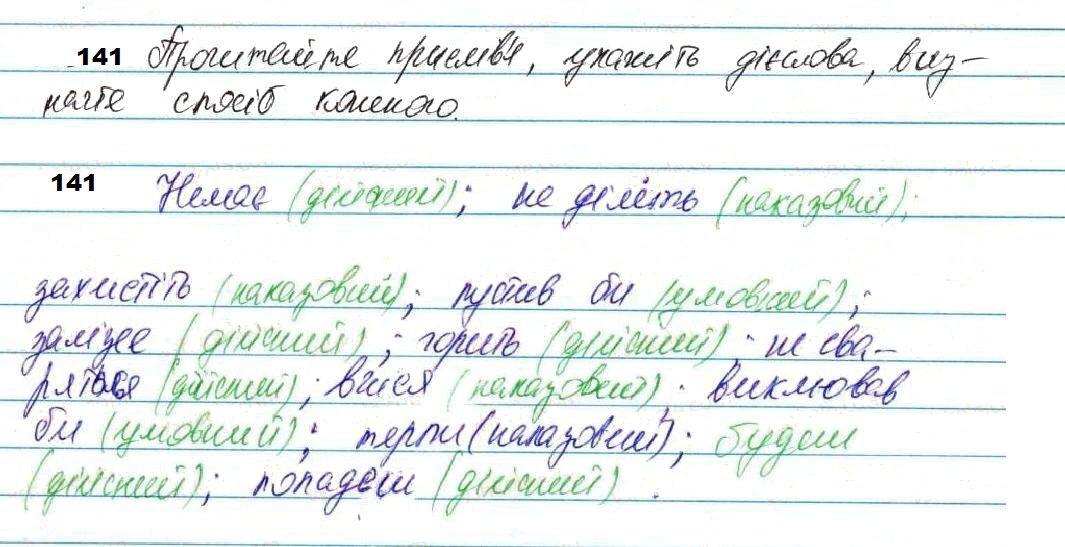 141 Прочитайте прислів'я, укажіть дієслова, виз-
начте спосіб кожного.
141 Немає (дійсний); не діліть (наказовий);
захистіть (наказовий); пустив би (умовний);
залізе (дійсний); горить (дійсний); не сва-
ряться (дійсний); вчися (наказовий); виклював
би (умовний); терпи (наказовий); будеш
(дійсний); попадеш (дійсний).